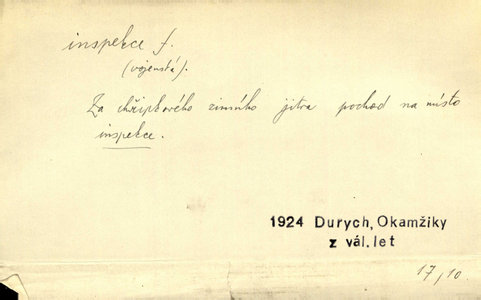 inspekce f.
(vojenská).
Za chřipkového zimního jitra pochod na místo
inspekce.
1924 Durych, Okamžiky
z vál. let
17,10.